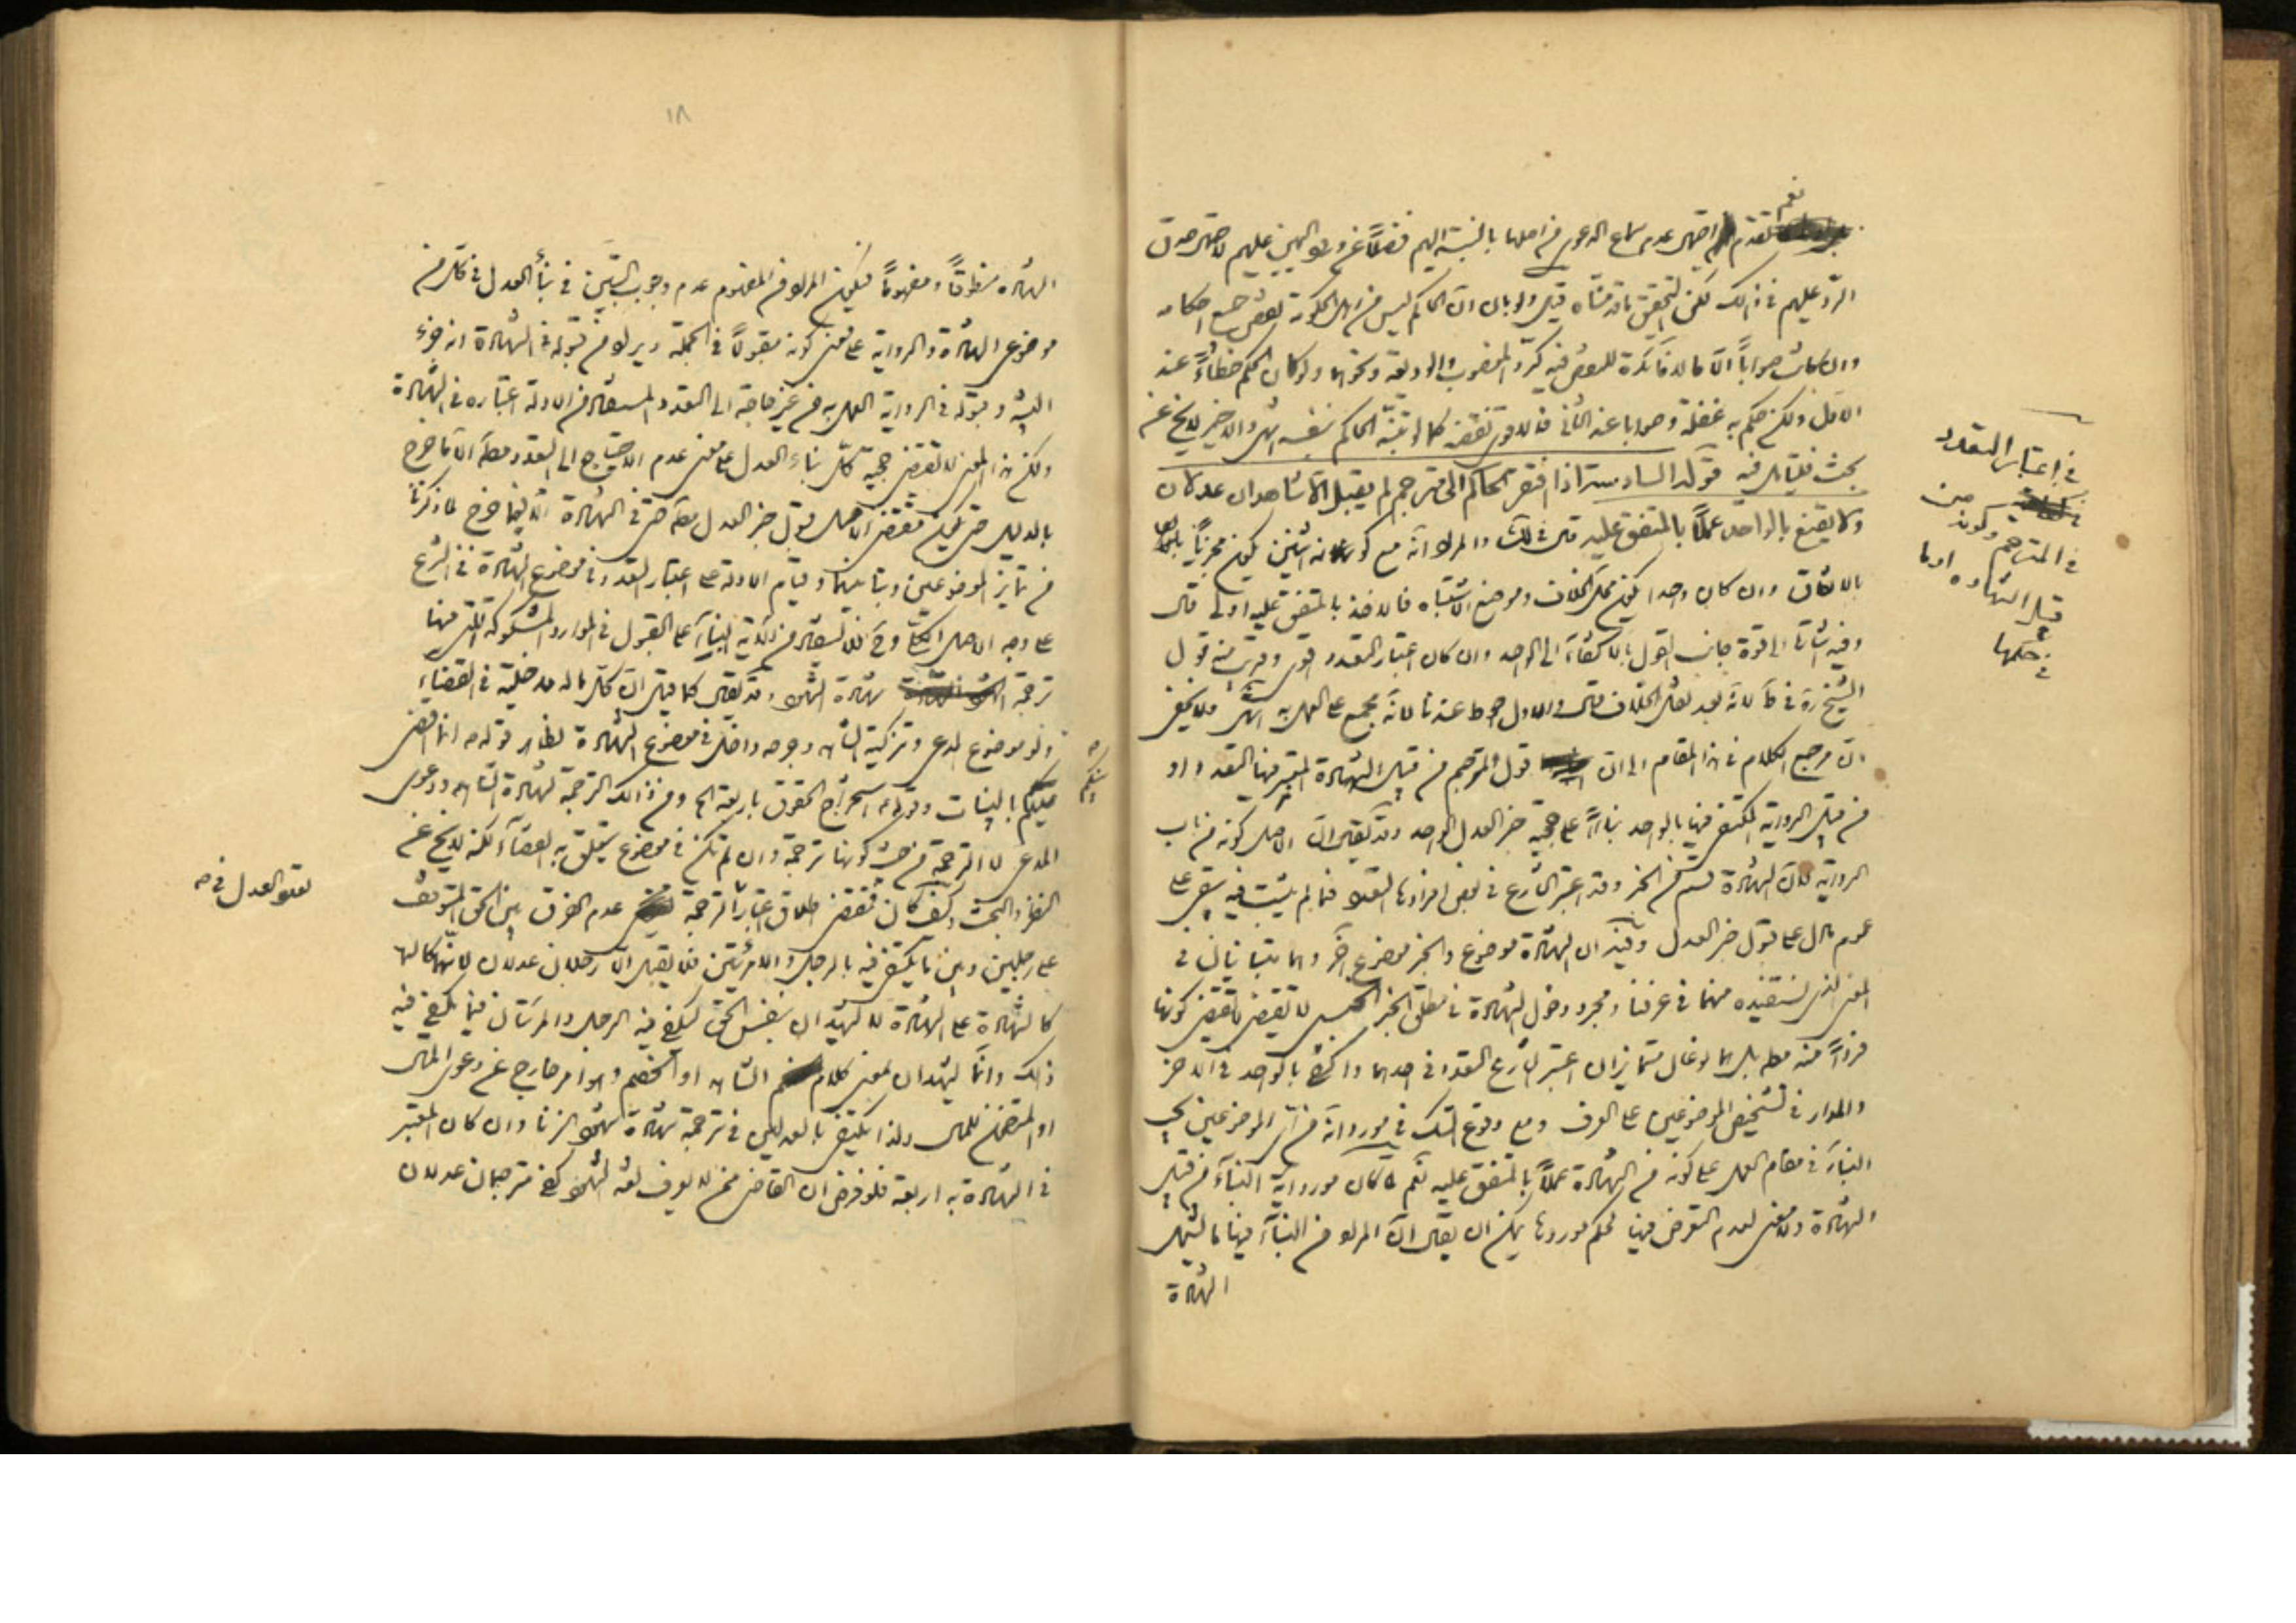 نعم
تقدم احتمال عدم سماع الدعوى من اصلها بالنسبة اليهم فضلاً عن توجه اليمين عليهم لاحتمال صدق
الردّ عليهم في ذالك لكن التحقيق ما قدمناه قيل ولو بان انّ الحاكم ليس من اهل الحكومة نقض جميع احكامه
وان كانت صواباً الّا ما لا فائدة للنقض فيه كردّ المغصوب والوديعة ونحوها ولو كان الحكم خطاءً عند
الاول ولكن حكم به غفلة وصوابا عند الثاني فالاقوى نقضه كما لو تبيّنه الحاكم بنفسه انتهى والاخير لا يخ عن
بحث فليتامل فيه قوله السادسة اذا افتقر الحاكم الى مترجم لم يقبل الّا شاهدان عدلان
ولا يقنع بالواحد عملاً بالمتفق عليه قال في لك والمراد انّه مع كونه اثنين يكون مجزياً
بالاتفاق وان كان واحدا يكون محل الخلاف وموضع الاشتباه فالاخذ بالمتفق عليه اولى قال
وفيه اشارة الى قوة جانب القول بالاكتفاء الى الواحد وان كان اعتبار التعدد اقوى وقريب منه قول
الشيخ ره في ط لانّه بعد نقل الخلاف قال والاول احوط عندنا لانّه مجمع على العمل به انتهى ولا يخفى
انّ مرجع الكلام في هذا المقام الى ان قول المترجم من قبيل الشهادة المعتبر فيها التعدد او
من قبيل الرواية المكتفى فيها بالواحد بناءً على حجية خبر العدل الواحد وقد يقال ان الاصل كونه من باب
الرواية لانّ الشهادة قسم من الخبر وقد اعتبر الشارع في بعض افرادها التعدد فما لم يثبت فيه يبقى على
عموم ما دل على قبول خبر العدل وفيه ان الشهادة موضوع والخبر موضوع آخر وهما متباينان في
المعنى الذى نستفيده منهما في عرفنا ومجرد دخول الشهادة في مطلق الخبر الجنسي لا يقتضى كونها
فرداً منه مط بل هما نوعان متمايزان اعتبر الشارع التعدد في احدهما واكتفى بالواحد في الاخر
والمدار في تشخيص الموضوعين على العرف ومع وقوع الشك في مورد انّه من اىّ الموضوعين يجب
البناء في مقام العمل على كونه من الشهادة عملاً بالمتفق عليه نعم لما كان مورد اية النبأ من قبيل
الشهادة ولا معنى لعدم التعرض فيها لحكم موردها يمكن ان يقال انّ المراد من النبأ فيها ما يشمل
الشهادة
في اعتبار التعدد
في المترجم وكونه من
قبيل الشهادة او ما
في حكمها
١٨
الشهادة منطوقاً ومفهوماً فيكون المراد من المفهوم عدم وجوب التبيّن في نبأ العدل في كل من
موضوعى الشهادة والرواية على معنى كونه مقبولاً في الجملة ويراد من قبوله في الشهادة انه جزء
البينة وقبوله في الرواية العمل به من غير حاجة الى التعدد والمستفاد من الادلة اعتباره في الشهادة
ولكن هذا المعنى لا يقتضى حجية كلّ نبأ العدل على معنى عدم الاحتياج الى التعدد مطلقا الّا ما خرج
بالدليل حتى يكون مقتضى الاصل قبول خبر العدل مط حتى في الشهادة الّا فيما خرج لما ذكرنا
من تمايز الموضوعين وتباينهما وقيام الادلة على اعتبار التعدد في موضوع الشهادة في الشرع
على وجه الاصل الكلى وح فلا تستفاد من آية النبأ على القبول في الموارد المشكوكة التى منها
ترجمة شهادة الشهود وقد يقال كما قيل انّ كلّ ما له مدخلية في القضاء
ولو موضوع المدعى وتزكية الشاهد وجرحه داخل في موضوع الشهادة لظاهر قوله ص انما اقضى
بينكم بالبينات وقوله ع استخراج الحقوق باربعة الخ ومن ذالك الترجمة لشهادة الشاهد ودعوى
المدعى لا الترجمة من حيث كونها ترجمة وان لم تكن في موضوع يتعلق به القضاء لكنه لا يخ عن
النظر والبحث وكيف كان فمقتضى اطلاق اعتبار الترجمة عدم الفرق بين الحق المتوقف
على رجلين وبين ما يكتفى فيه بالرجل والامرئتين فلا يقبل الّا رجلان عدلان لانّهما كالها
كالشهادة على الشهادة لا يشهدان بنفس الحق ليكفى فيه الرجل والمرئتان فيما يكفى فيه
ذالك وانّما يشهدان بمعنى كلام الشاهد او الخصم وهو امر خارج عن دعوى المال
او المتضمن للمال ولذا يكتفى بالعدلين في ترجمة شهادة شهود الزنا وان كان المعتبر
في الشهادة به اربعة فلو فرض ان القاضى ممن لا يعرف لغة الشهود كفى مترجمان عدلان